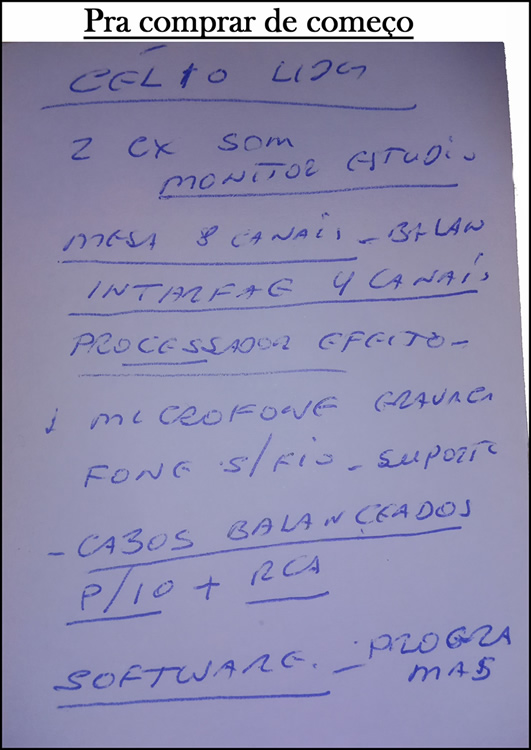 Pra comprar de começo
CÉLIO
2 CX SOM
MONITOR ESTUDIO
MESA 8 CANAIS - BALAN
INTARFAE 4 CANAIS
PROCESSADOR EFEITO -
1 MICROFONE
FONE S/FIO - SUPORTE
- CABOS BALANCEADOS
P/10 + RCA
SOFTWARE. - PROGRA
MAS